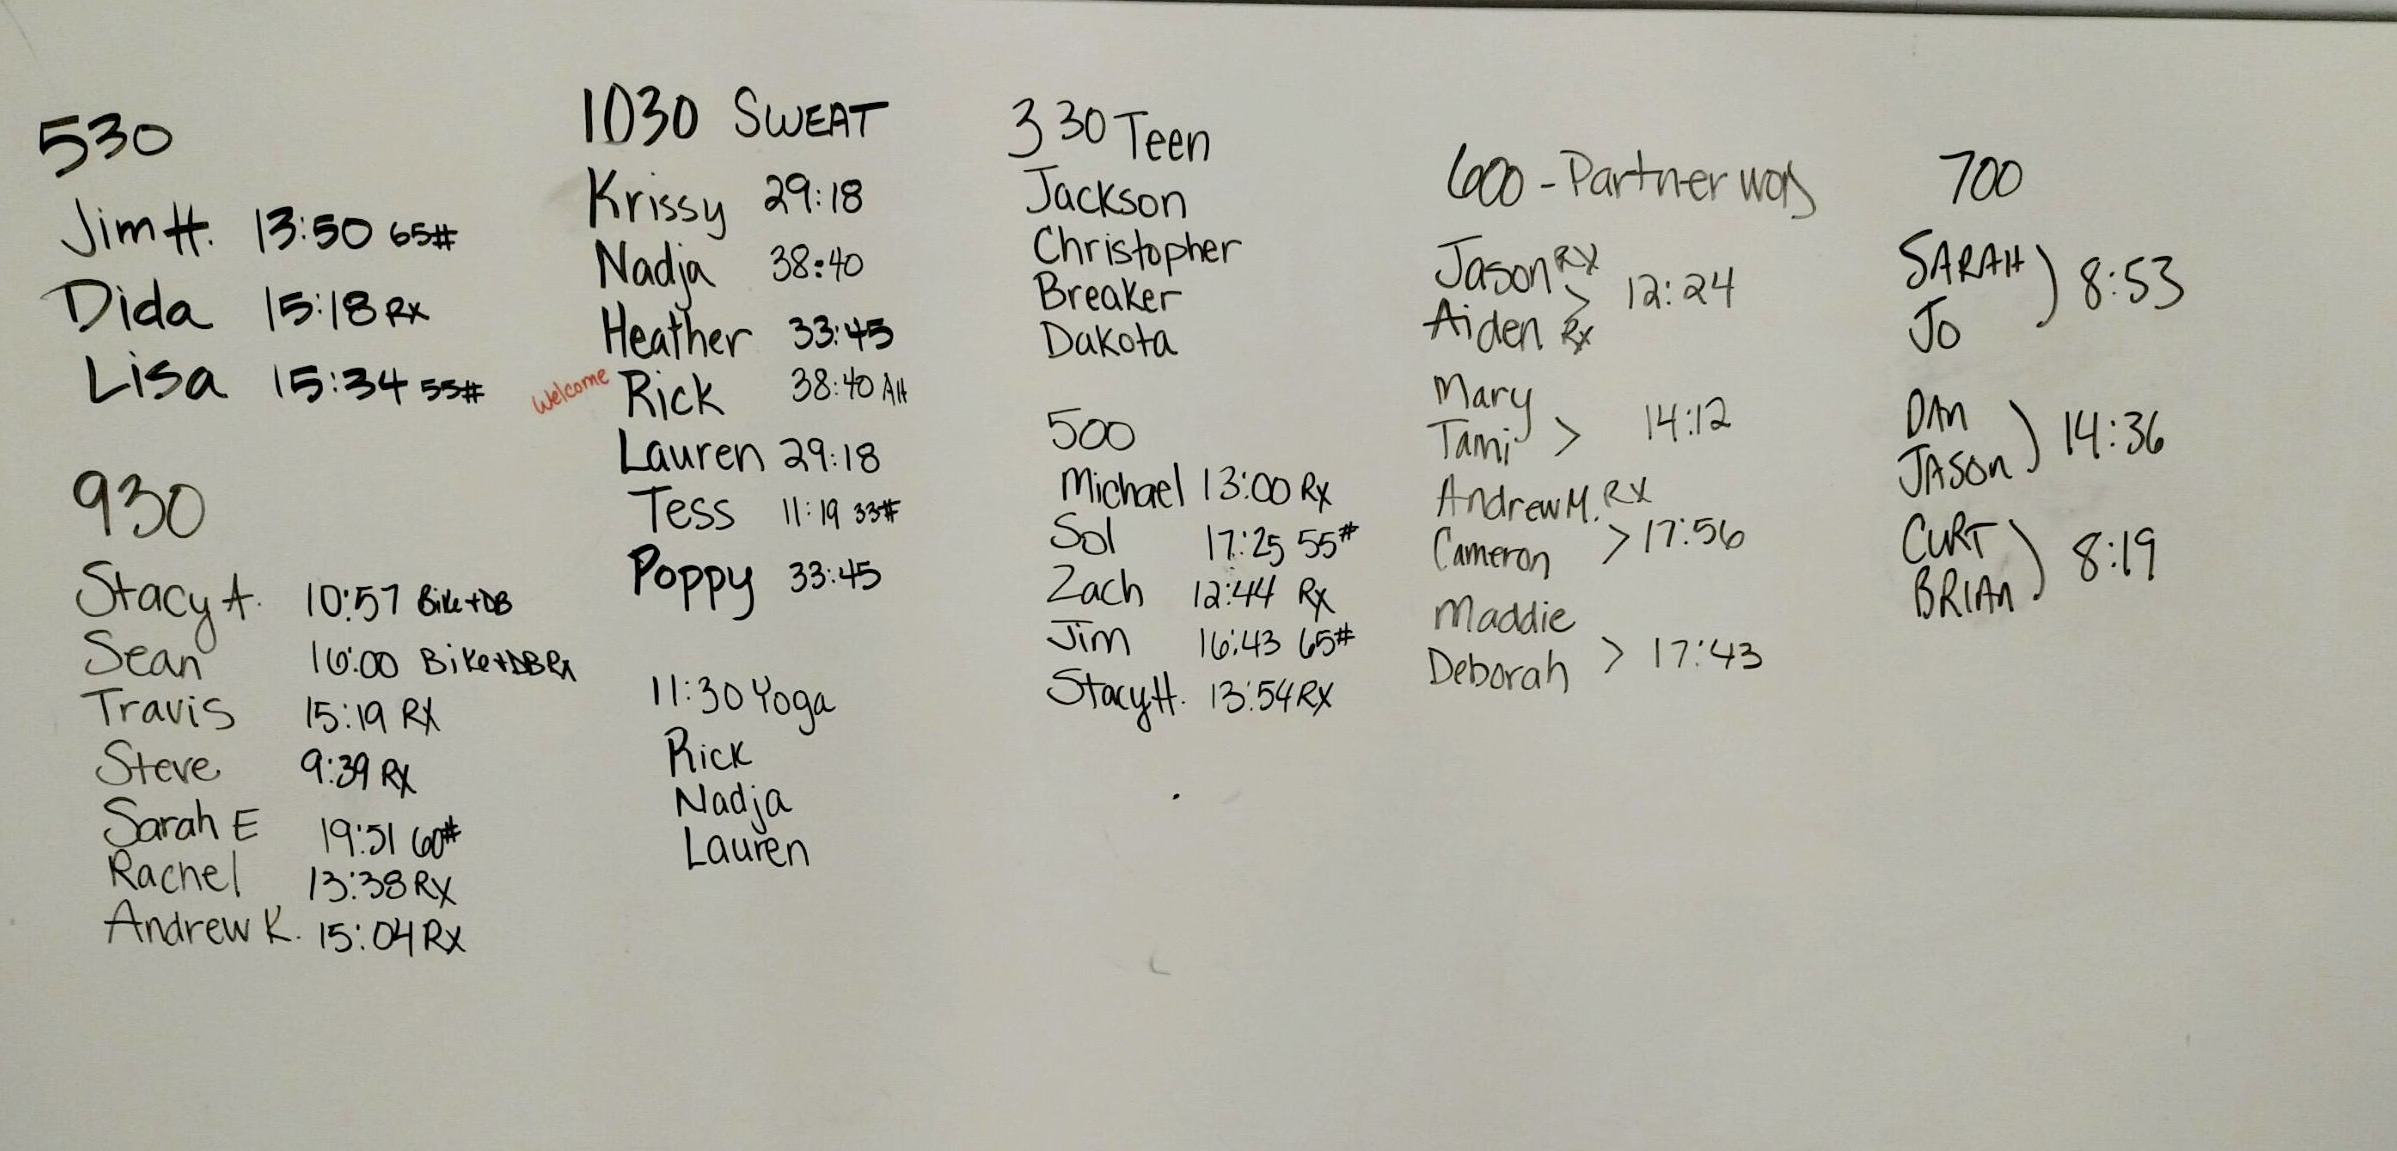 530
Jim H. 13:50 65#
Dida 15:18 RX
Lisa 15:34 55#
930
Stacy A. 10:57 Bike+DB
Sean 16:00 Bike+DB Rx
Travis 15:19 RX
Steve 9:39 RX
Sarah E 19:51 60#
Rachel 13:38 RX
Andrew K. 15:04 RX
1030 SWEAT
Krissy 29:18
Nadja 38:40
Heather 33:45
Welcome Rick 38:40 AH
Lauren 29:18
Tess 11:19 33#
Poppy 33:45
11:30 Yoga
Rick
Nadja
Lauren
330 Teen
Jackson
Christopher
Breaker
Dakota
500
Michael 13:00 Rx
Sol 17:25 55#
Zach 12:44 Rx
Jim 16:43 65#
Stacy H. 13:54 RX
600 - Partner
Jason RX
Aiden Rx > 12:24
Mary
Tami > 14:12
Andrew M. RX
Cameron > 17:56
Maddie
Deborah > 17:43
700
SARAH
JO ) 8:53
DAN
JASON ) 14:36
CURT
BRIAN ) 8:19